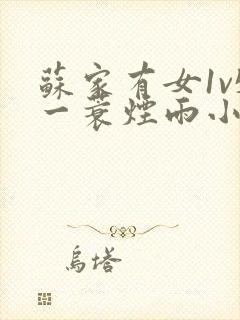 蘇家有女1v
一蓑煙雨小
烏塔